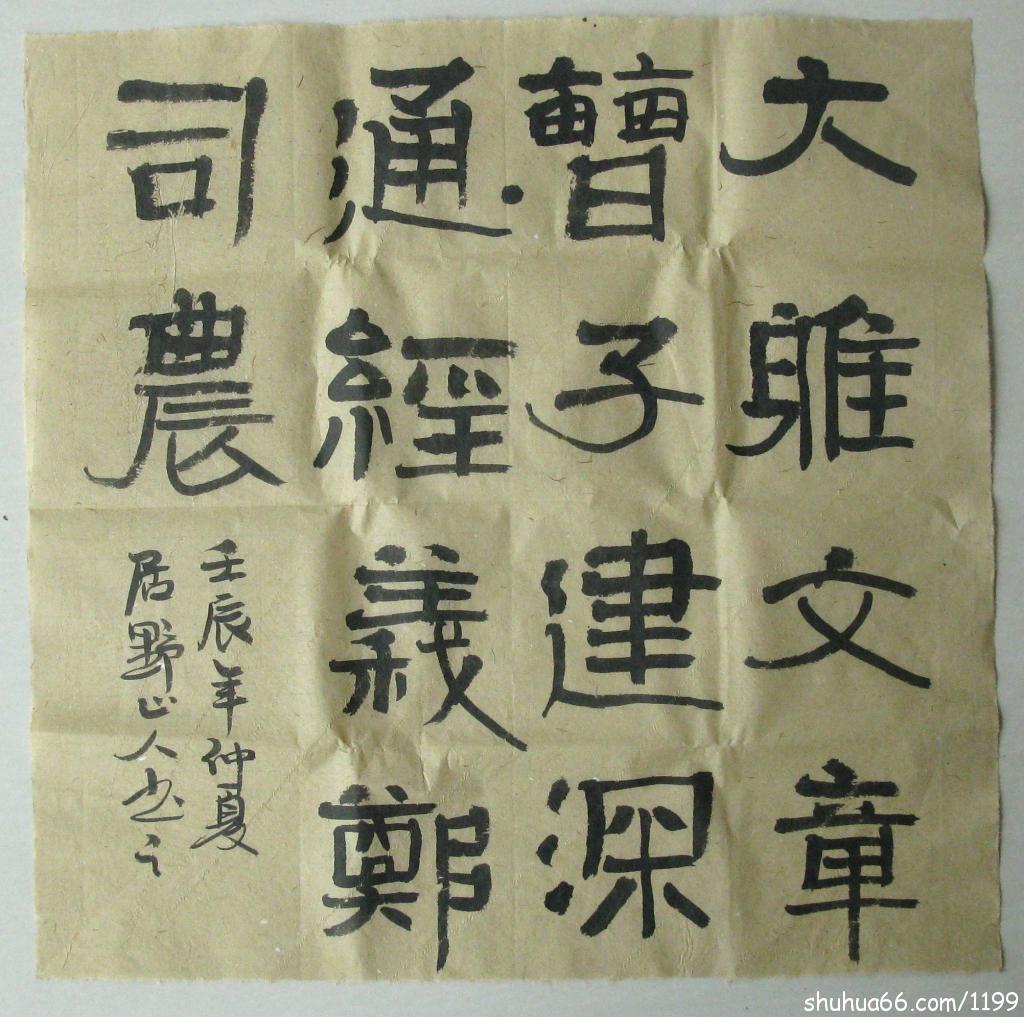 大雅文章
曹子建深
通經義鄭
司農
壬辰年仲夏
居野山人书之
shuhua66.com/1199